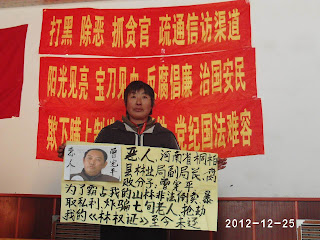 打黑 除恶 抓贪官 疏通信访渠道
阳光见亮 宝刀见血 反腐倡廉 治国安民
欺下瞒上 党纪国法难容
恶人
曾宪平
恶人,河南省桐柏
县林业局副局长,离
改分子曾宪平
为了霸占我的山林非法倒卖暴
取私利,炸骗七旬老人,抢劫
我的《林权证》至今未还
2012-12-25